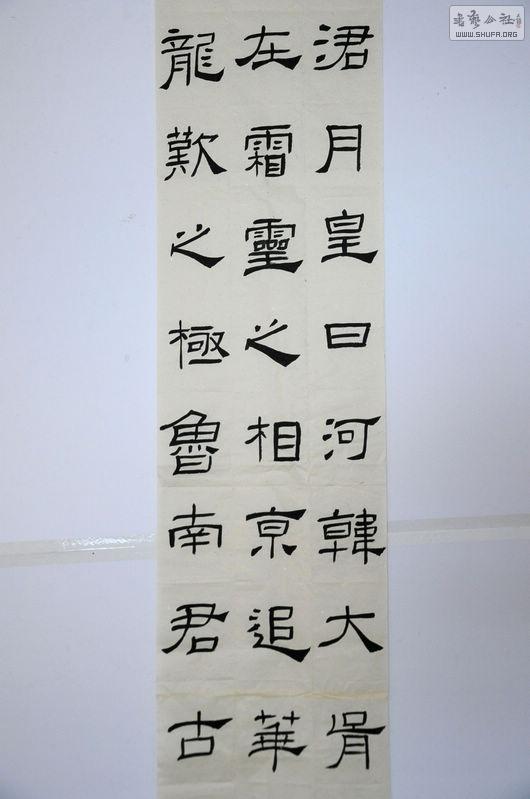 涒月皇曰河韓大胥
在霜靈之相京追華
龍歎之極魯南君古
書藝公社
WWW.SHUFA.ORG